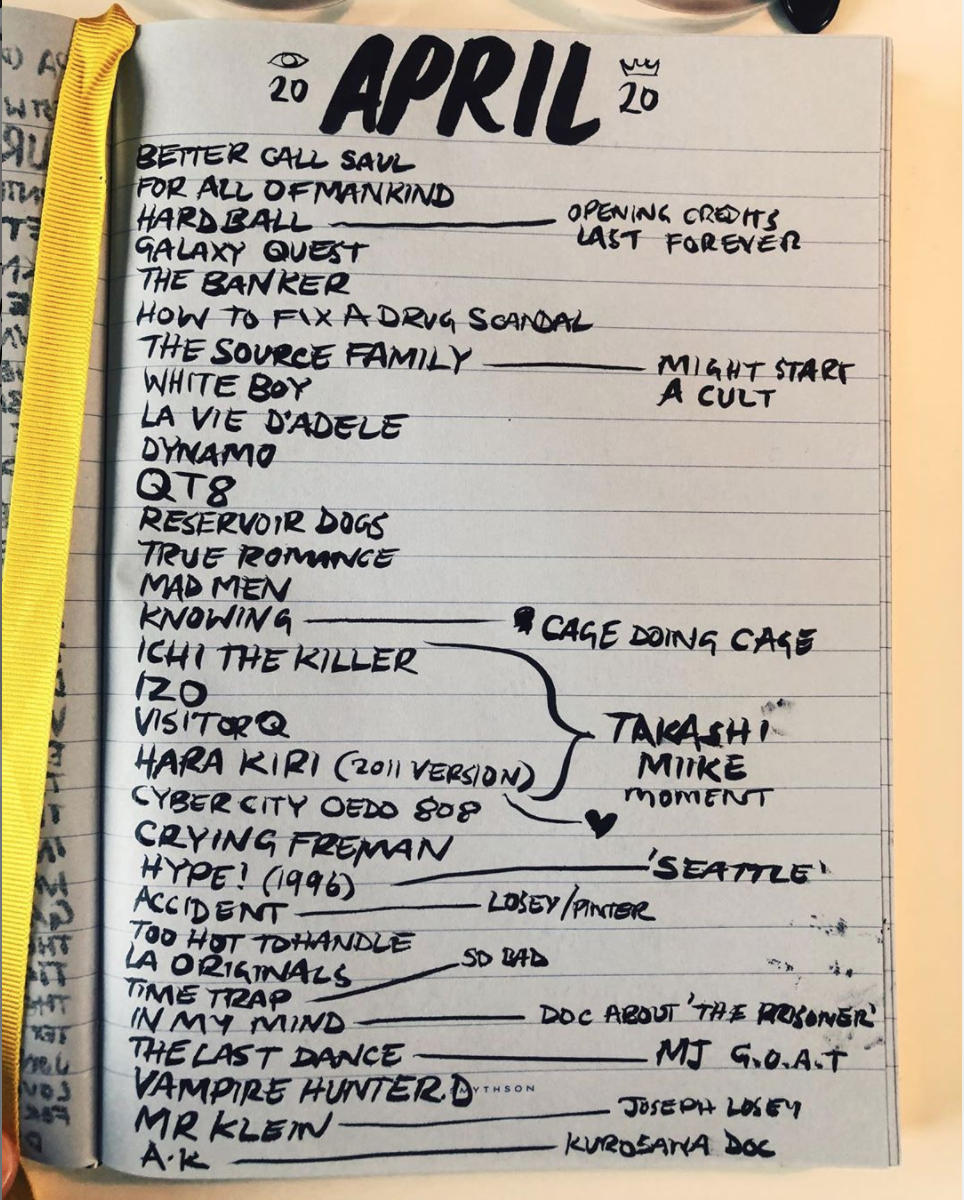 20 APRIL 20
BETTER CALL SAUL
FOR ALL OF MANKIND
HARDBALL — OPENING CREDITS
LAST FOREVER
GALAXY QUEST
THE BANKER
HOW TO FIX A DRUG SCANDAL
THE SOURCE FAMILY — MIGHT START
A CULT
WHITE BOY
LA VIE D'ADELE
DYNAMO
QT8
RESERVOIR DOGS
TRUE ROMANCE
MAD MEN
KNOWING — CAGE DOING CAGE
ICHI THE KILLER
IZO
VISITOR Q
TAKASHI
MIIKE
MOMENT
HARA KIRI (2011 VERSION)
CYBER CITY OEDO 808 ♥
CRYING FREMAN
HYPE! (1996) — 'SEATTLE'
ACCIDENT — LOSEY/PINTER
TOO HOT TO HANDLE
LA ORIGINALS
TIME TRAP — SO BAD
IN MY MIND — DOC ABOUT 'THE PRISONER'
THE LAST DANCE — MJ G.O.A.T
VAMPIRE HUNTER.D
MYTHSON
MR KLEIN — JOSEPH LOSEY
A.K — KUROSAWA DOC